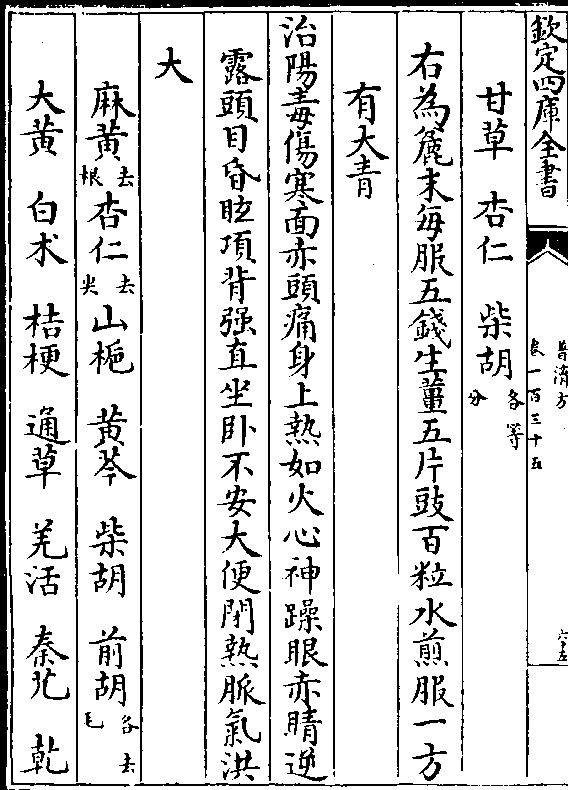 欽定四庫全書
普濟方
卷一百三十五
甘草 杏仁 柴胡各等分
右為麄末每服五錢生薑五片豉百粒水煎服一方
有大青
治陽毒傷寒面赤頭痛身上熱如火心神躁眼赤睛逆
露頭目昏眩項背强直坐卧不安大便閉熱脈氣洪
大
麻黄去根 杏仁去尖 山梔 黄芩 柴胡 前胡各去毛
大黄 白朮 桔梗 通草 羌活 秦艽 乾